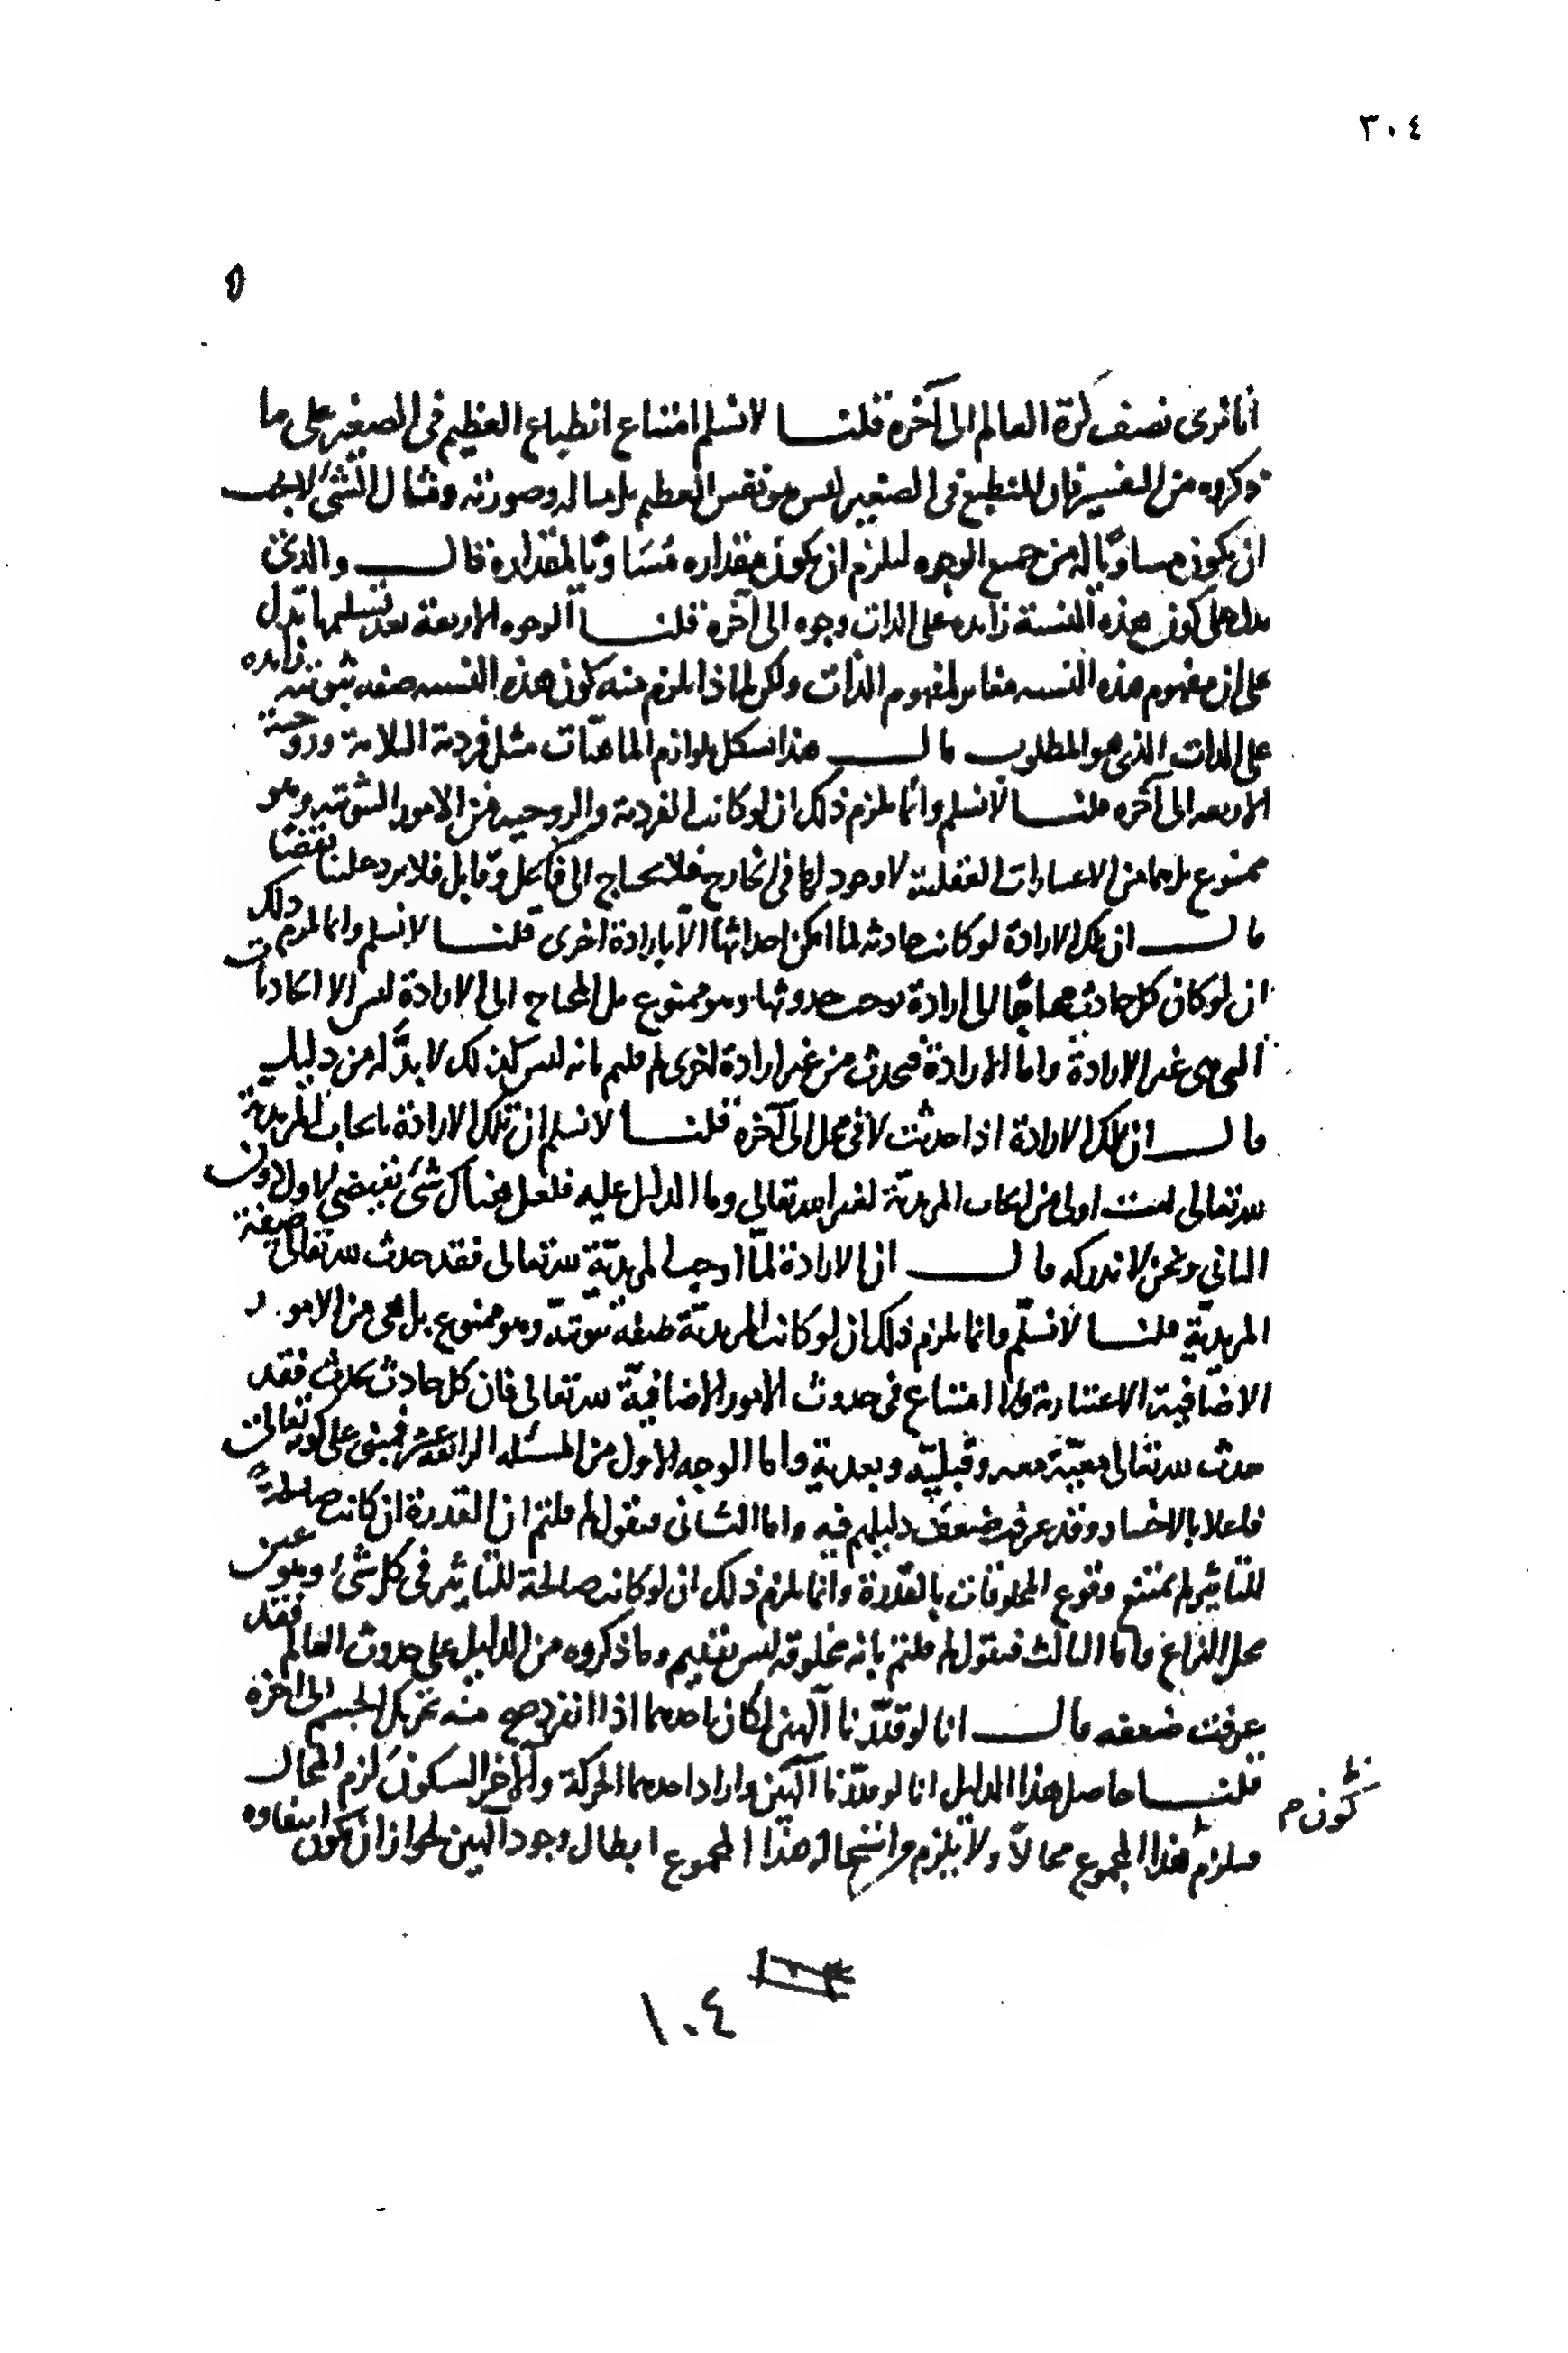 ٣٠٤
انا نرى نصف كرة العالم الى آخره قلنا لا نسلم امتناع انطباع العظيم فى الصغير على ما
ذكروه من التفسير فان المنطبع فى الصغير ليس هو نفس العظيم بل مثاله وصورته ومثال الشئ لا يجب
ان يكون مساويا له من جميع الوجوه ليلزم ان يكون مقداره مساويا لمقداره قال والذى
يدل على كون هذه النسبة زايدة على الذات وجوه الى آخره قلنا الوجوه الاربعة بعد تسليمها تدل
على ان مفهوم هذه النسبه مغاير لمفهوم الذات ولكن لماذا يلزم منه كون هذه النسبه صفه ثبوتيه زايده
على الذات الذى هو المطلوب قال هذا يشكل بلوازم الماهيات مثل فردية الثلاثة وزوجية
الاربعه الى آخره قلنا لا نسلم وانما يلزم ذلك ان لو كانت الفردية والزوجيه من الامور الثبوتيه وهو
ممنوع بل هما من الاعتبارات العقلية لا وجود لها فى الخارج فلا يحتاج الى فاعل وقابل فلا يرد علينا نقضا
قال ان تلك الارادة لو كانت حادثه لما امكن احداثها الا بارادة اخرى قلنا لا نسلم وانما يلزم ذلك
ان لو كان كل حادث محتاجا الى ارادة توجب حدوثها وهو ممنوع بل المحتاج الى الارادة ليس الا الحادثات
التى هى غير الارادة واما الارادة فتحدث من غير ارادة اخرى لم قلتم بانه ليس كذلك لا بد له من دليل
قال ان تلك الارادة اذا حدثت لا فى محل الى آخره قلنا لا نسلم ان تلك الارادة بايجاب المريدية
لله تعالى ليست اولى من ايجاب المريدية لغير الله تعالى وما الدليل عليه فلعل هناك شئ يقتضى الاول دون
الثانى ونحن لا ندركه قال ان الارادة لما اوجبت المريدية لله تعالى فقد حدث لله تعالى صفة
المريدية قلنا لا نسلم وانما يلزم ذلك ان لو كانت المريدية صفه ثبوتيه وهو ممنوع بل هى من الامور
الاضافية الاعتبارية ولا امتناع فى حدوث الامور الاضافية لله تعالى فان كل حادث يحدث فقد
حدث لله تعالى معية معه وقبلية وبعدية واما الوجه الاول من المسئله الرابعة عشر فمبنى على كونه تعالى
فاعلا بالاختيار وقد عرفت ضعف دليلهم فيه واما الثانى فنقول لم قلتم ان القدرة ان كانت صالحة
للتاثير لم يمتنع وقوع المخلوقات بالقدرة وانما يلزم ذلك ان لو كانت صالحة للتاثير فى كل شئ وهو عين
محل النزاع واما الثالث فنقول لم قلتم بانه مخلوقه ليس بقديم وما ذكروه من الدليل على حدوث العالم فقد
عرفت ضعفه قال انا لو قدرنا آلهين لكان احدهما اذا انفرد صح منه تحريك الجسم الى اخره
قلنا حاصل هذا الدليل انا لو قدرنا آلهين واراد احدهما الحركة والآخر السكون لزم المحال
فيلزم هذا المجموع محالا ولا يلزم من استحالة هذا المجموع ابطال وجود آلهين لجواز ان يكون انتفاوه
كون م
١٠٤